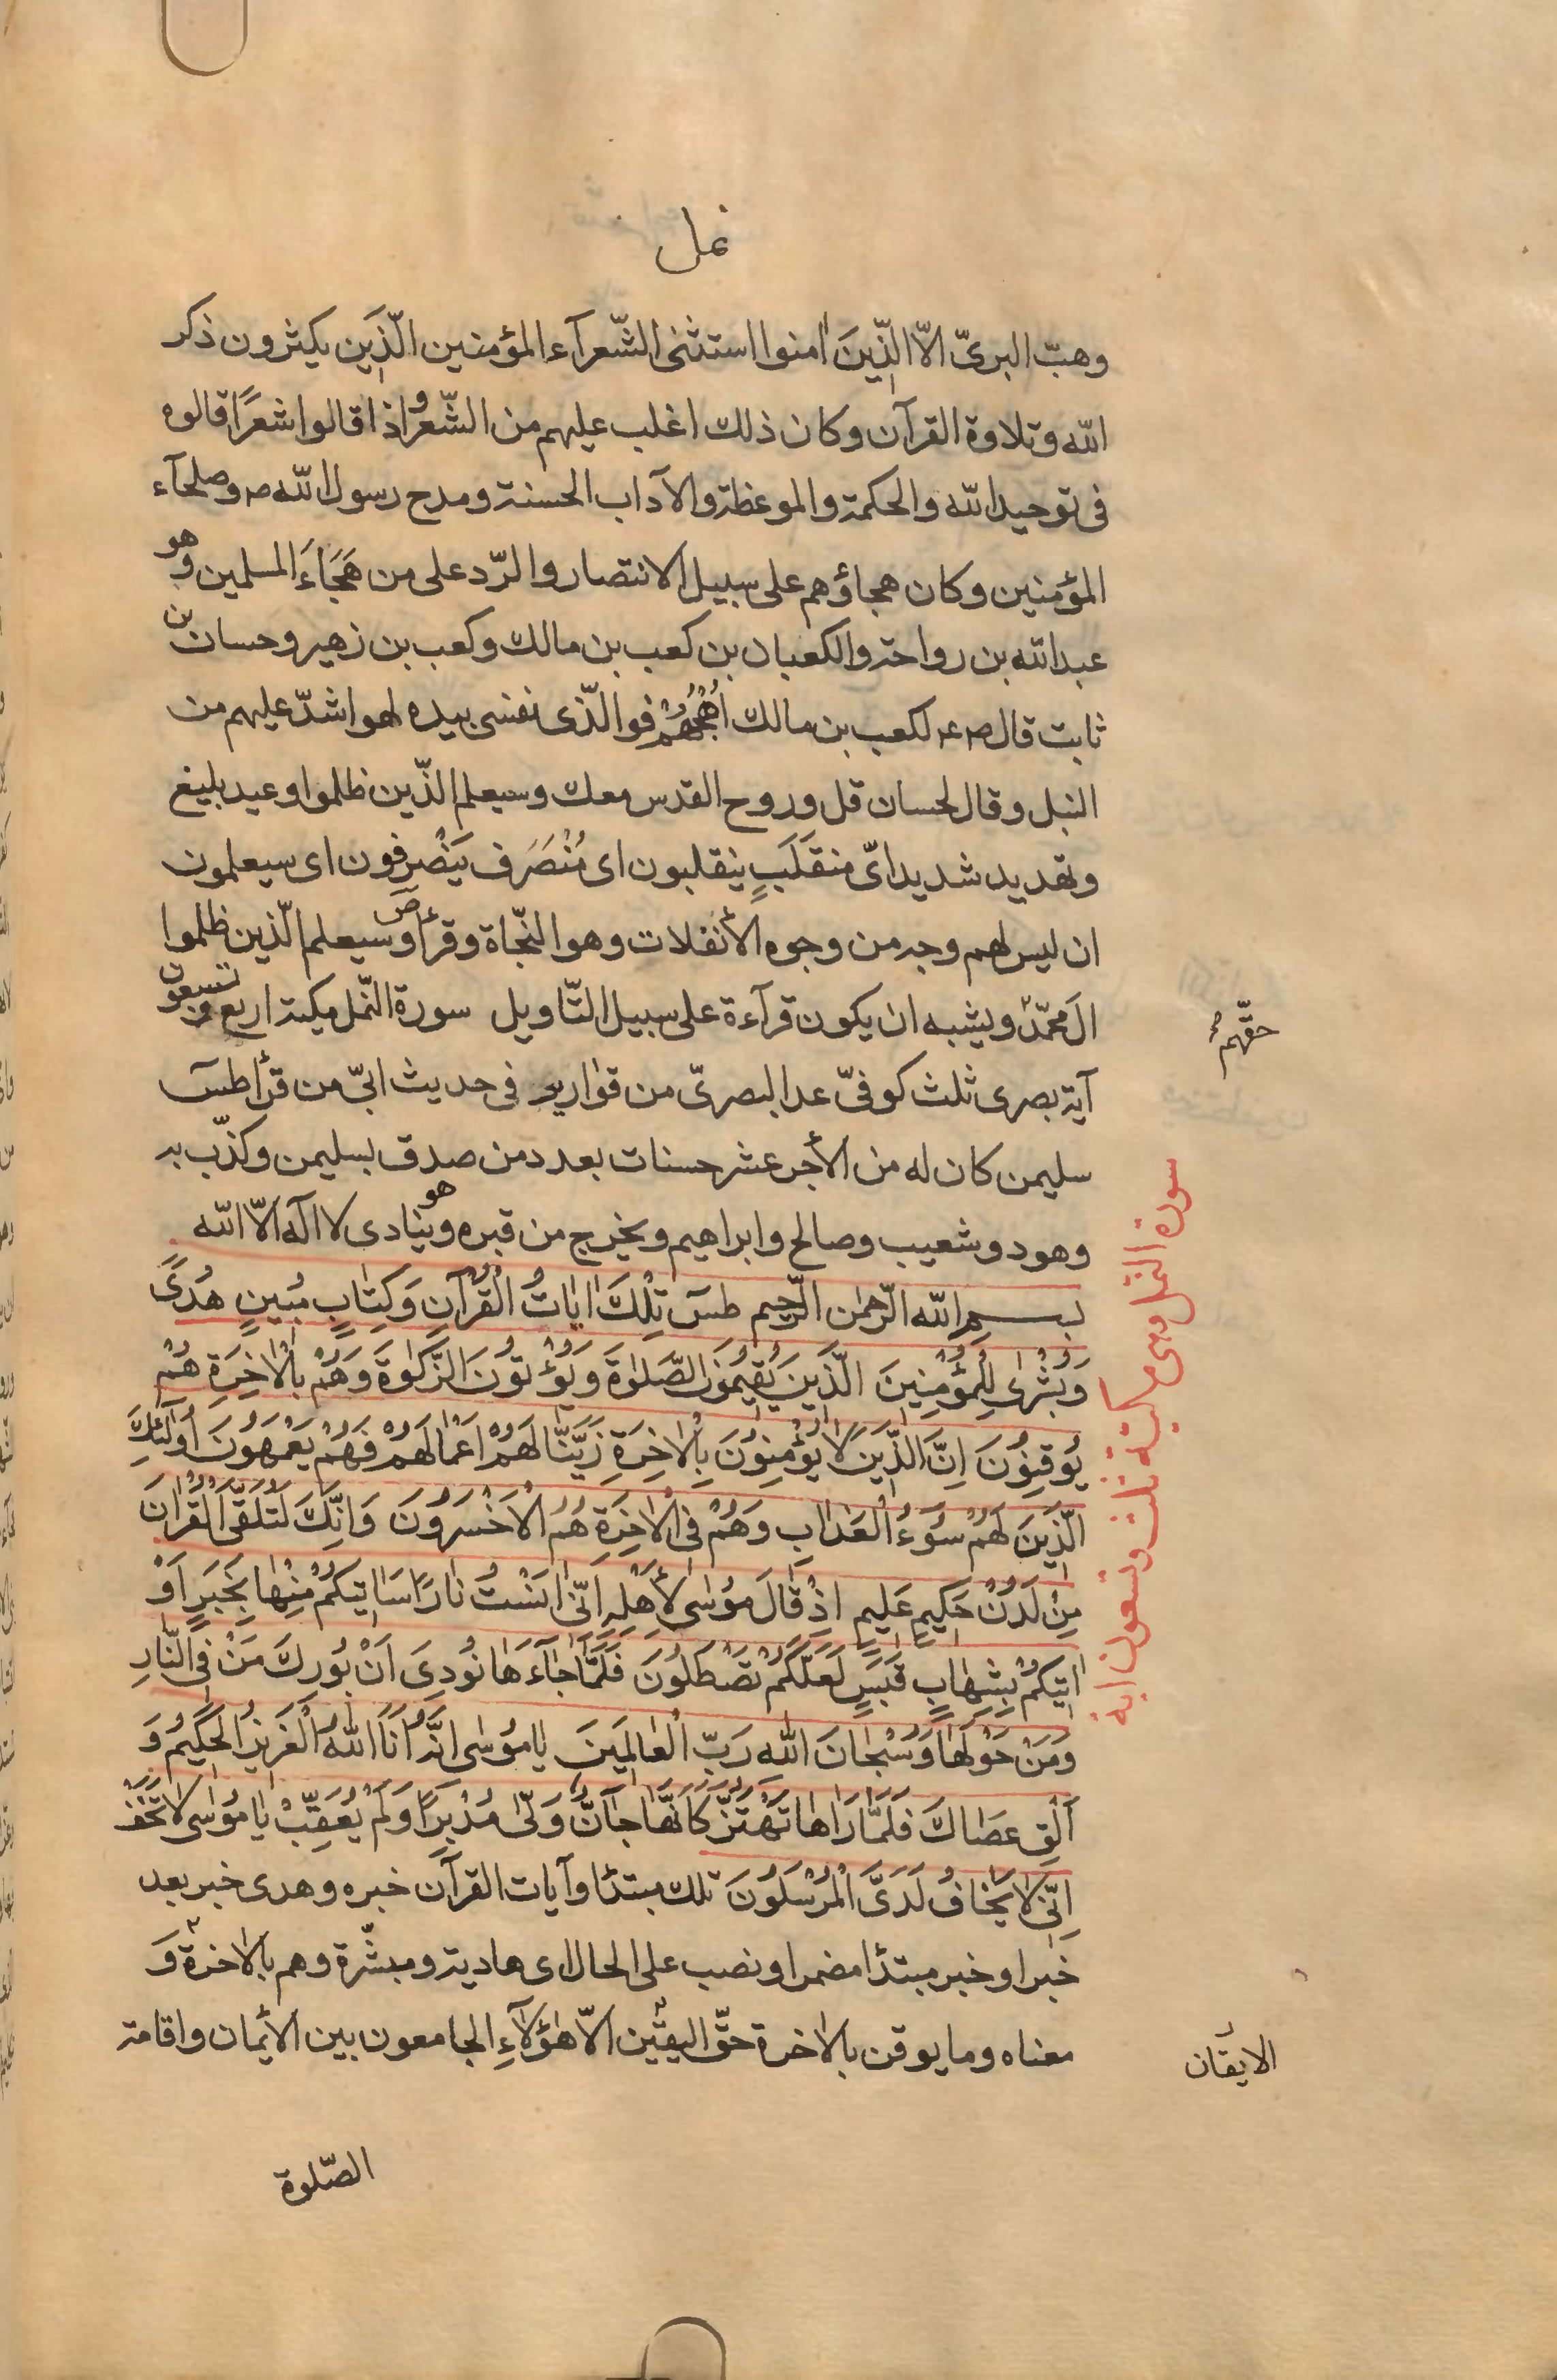 نمل
وهبّ البرىّ الاّ الّذين اٰمنوا استثنى الشّعرآء المؤمنين الّذين يكثرون ذكر
اللّه وتلاوة القرآن وكان ذلك اغلب عليهم من الشّعر و اذا قالوا شعرًا قالوه
فى توحيد اللّه والحكمة والموعظة والآداب الحسنة ومدح رسول اللّه ص وصلحآء
المؤمنين وكان هجاؤهم على سبيل الانتصار والرّد على من هَجَاءَ المسلمين وهو
عبد اللّه بن رواحة والكعبان بن كعب بن مالك وكعب بن زهير وحسان بن
ثابت قال ص ع لكعب بن مالك اُهْجُهُمْ فو الّذى نفسى بيده لهو اشدّ عليهم من
النبل وقال لحسان قل وروح القدس معك وسيعلم الذّين ظلموا وعيد بليغ
وتهديد شديد اىّ منقَلَبٍ ينقلبون اى مُنْصَرَف يَنْصَرِفون اى سيعلمون
ان ليس لهم وجه من وجوه الأنفلات وهو النّجاة وقرأ ص وسيعلم الّذين ظلموا
الَ محمّد حقّهم ويشبه ان يكون قرآءة على سبيل التّاويل سورة النّمل مكية اربع وتسعون
آية بصرى ثلث كوفىّ عد البصرىّ من قوارير فى حديث ابىّ من قرأ طس
سليمن كان له من الأجر عشر حسنات بعدد من صدق بسليمن وكذّب به
وهود وشعيب وصالح وابراهيم ويخرج من قبره وهو ينادى لا اله الاّ اللّه
بسم اللّه الرّحمٰن الرّحيم طسٓ تِلْكَ اٰيَاتُ الْقُرْآنِ وَكِتَابٍ مُبينٍ هُدًى
وَبُشْرٰى لِلْمُؤْمِنِينَ الَّذينَ يُقيمُونَ الصَّلوٰةَ وَيُؤْتُونَ الزَّكوٰةَ وَهُمْ بِالْاٰخِرَةِ هُمْ
يُوقِنُونَ اِنَّ الَّذينَ لا يُؤْمِنُونَ بِالْاٰخِرَةِ زَيَّنّا لَهُمْ اَعْمالَهُمْ فَهُمْ يَعْمَهُونَ اُولٰئِكَ
الَّذينَ لَهُمْ سُوءُ الْعَذابِ وَهُمْ فِى الْاٰخِرَةِ هُمُ الْاَخْسَرُونَ وَاِنَّكَ لَتُلَقَّى الْقُرْاٰنَ
مِنْ لَدُنْ حَكيمٍ عَليمٍ اِذْ قالَ مُوسٰى لِأَهْلِهِ اِنّى اٰنَسْتُ نارًا سَاٰتيكُمْ مِنْها بِخَبَرٍ اَوْ
اٰتيكُمْ بِشِهابٍ قَبَسٍ لَعَلَّكُمْ تَصْطَلُونَ فَلَمّا جآءَها نُودِىَ اَنْ بُورِكَ مَنْ فِى النّارِ
وَمَنْ حَوْلَها وَسُبْحانَ اللّهِ رَبِّ الْعالَمينَ يا مُوسٰى اِنَّهُ اَنَا اللّهُ الْعَزيزُ الْحَكيمُ وَ
اَلْقِ عَصاكَ فَلَمّا رَاٰها تَهْتَزُّ كَاَنَّها جآنٌّ وَلّٰى مُدْبِرًا وَلَمْ يُعَقِّبْ يا مُوسٰى لا تَخَفْ
اِنّى لا يَخافُ لَدَىَّ الْمُرْسَلُونَ تلك مبتدأ وآيات القرآن خبره وهدى خبر بعد
خبر او خبر مبتدأ مضمر او نصب على الحال اى هادية ومبشّرة وهم بالاخرة وَ
معناه وما يوقن بالاخرة حقّ اليقين الاّ هٰؤلآءِ الجامعون بين الأيمان واقامة
الصّلوة
حقّهم
سورة النمل وهى مكية ثلث وتسعون اية
الايقان